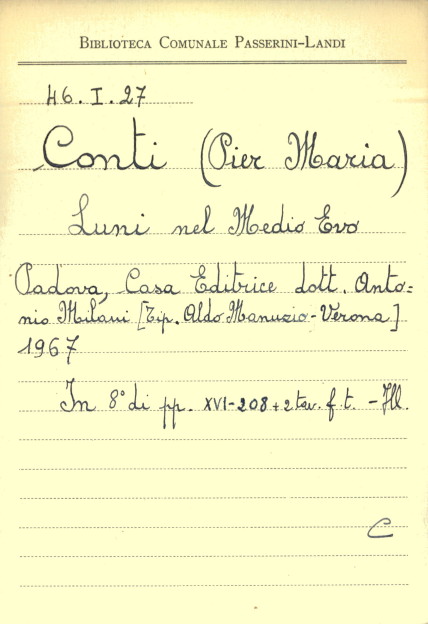 BIBLIOTECA COMUNALE PASSERINI-LANDI
46. I. 27
Conti (Pier Maria)
Luni nel Medio Evo
Padova, Casa Editrice dott. Anto=
nio Milani [Tip. Aldo Manuzio - Verona]
1967
In 8° di pp. XVI-208 + 2 tav. f. t. - Ill.
C